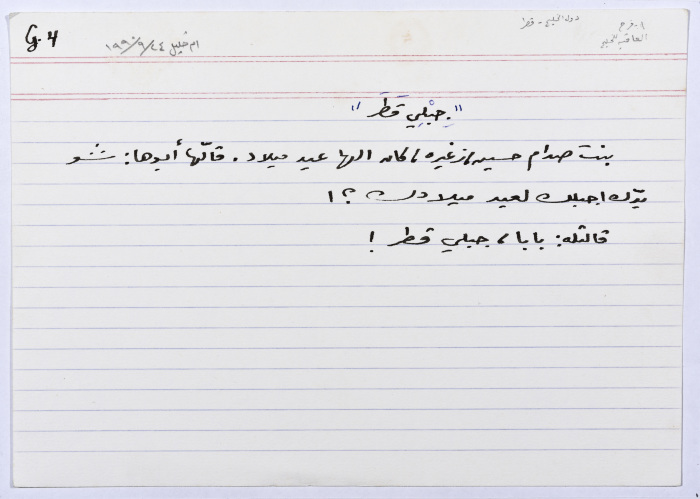 G.4
ام خليل ١٩٩٠/٩/٢٤
دول الخليج - قطر
"جِبْلِي قَطَر"
بنت صدام حسين، زغيره، كان الها عيد ميلاد. قالّها أبوها: شو
بدّك اجبلك لعيد ميلادك؟!
قالتله: بابا، جبلي قطر!